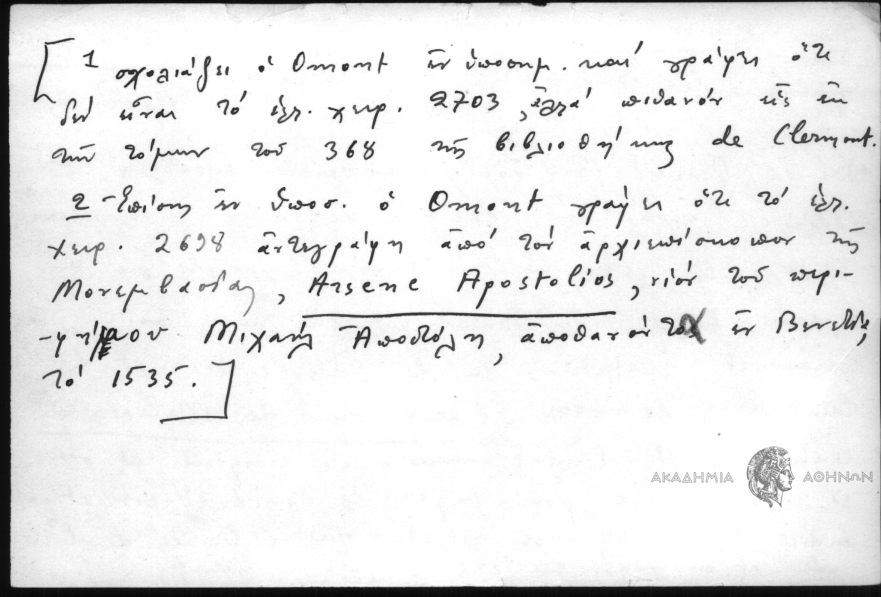 [ 1 σχολιάζει ὁ Omont ἐν ὑποσημ. καί γράφει ὅτι
δέν εἶναι τό ἑλ. χειρ. 2703, ἀλλά πιθανόν εἷς ἐκ
τῶν τόμων τοῦ 368 τῆς βιβλιοθήκης de Clermont.
2 - Ἐπίσης ἐν ὑποσ. ὁ Omont γράφει ὅτι τό ἑλ.
χειρ. 2698 ἀντεγράφη ἀπό τόν ἀρχιεπίσκοπον τῆς
Μονεμβασίας, Arsene Apostolios, υἱόν τοῦ περι-
-φήμου Μιχαήλ Ἀποστόλη, ἀποθανόντα ἐν Βενετίᾳ,
τό 1535. ]
ΑΚΑΔΗΜΙΑ ΑΘΗΝΩΝ